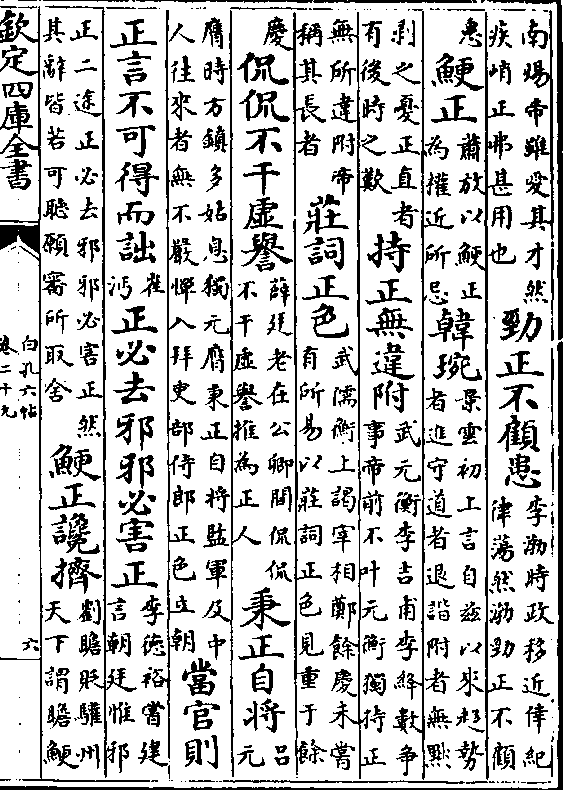 南賜帝雖愛其才然疾峭正弗甚用也勁正不顧患李渤時政移近倖紀律蕩然渤勁正不顧
患鯁正蕭放以鯁正為權近所忌韓琬景雲初上言自茲以來趨勢者進守道者退諧附者無黜
剥之憂正直者有後時之歎持正無違附武元衡李吉甫李絳數爭事帝前不叶元衡獨持正
無所違附帝稱其長者莊詞正色武儒衡上謁宰相鄭餘慶未嘗有所易以莊詞正色見重于餘
慶侃侃不干虛譽薛廷老在公卿間侃侃不干虛譽推為正人秉正自將呂元
膺時方鎮多姑息獨元膺秉正自將監軍及中人往來者無不嚴憚入拜吏部侍郎正色立朝當官則
正言不可得而詘崔沔正必去邪邪必害正李德裕嘗建言朝廷惟邪
正二途正必去邪邪必害正然其辭皆若可聽願審所取舍鯁正讒擠劉瞻貶驩州天下謂瞻鯁
欽定四庫全書
白孔六帖
卷二十九
六